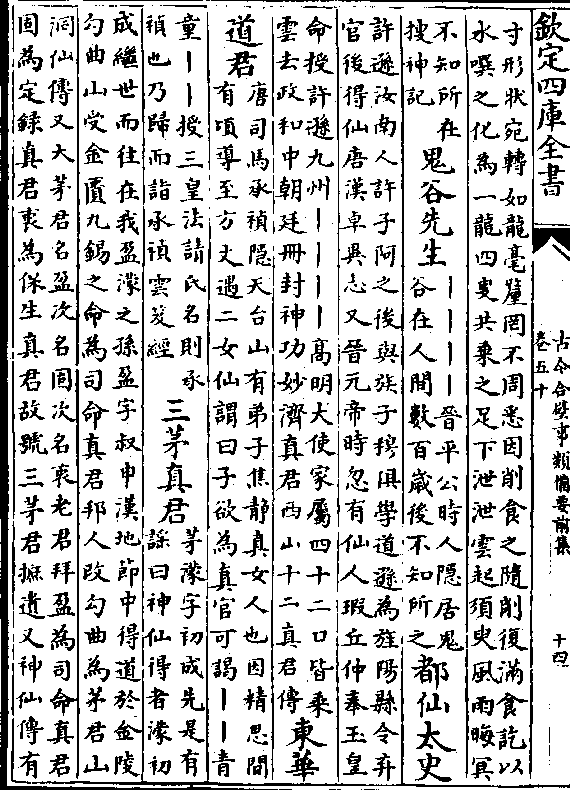 欽定四庫全書
古今合璧事類備要前集
卷五十
十四
寸形狀宛轉如龍毫釐罔不周悉因削食之隨削復滿食訖以
水噀之化為一龍四叟共乗之足下泄泄雲起須臾風雨晦冥
不知所在
搜神記
鬼谷先生
丨丨丨丨晉平公時人隱居鬼
谷在人間數百歲後不知所之
都仙太史
許遜汝南人許子阿之後與族子穆俱學道遜為旌陽縣令弃
官後得仙唐漢卓異志又晉元帝時忽有仙人瑕丘仲奉玉皇
命授許遜九州丨丨丨丨高明大使家屬四十二口皆乗
雲去政和中朝廷冊封神功妙濟真君西山十二真君傳
東華
道君
唐司馬承禎隱天台山有弟子焦静真女人也因精思間
有項導至方丈遇二女仙謂曰子欲為真官可謁丨丨青
童丨丨授三皇法請氏名則承
禎也乃歸而詣承禎雲笈經
三茅真君
茅濛字初成先是有
謡曰神仙得者濛初
成繼世而往在我盈濛之孫盈字叔申漢地節中得道於金陵
勾曲山受金匱九錫之命為司命真君邦人改勾曲為茅君山
洞仙傳又大茅君名盈次名固次名衷老君拜盈為司命真君
固為定録真君衷為保生真君故號三茅君摭遺又神仙傳有